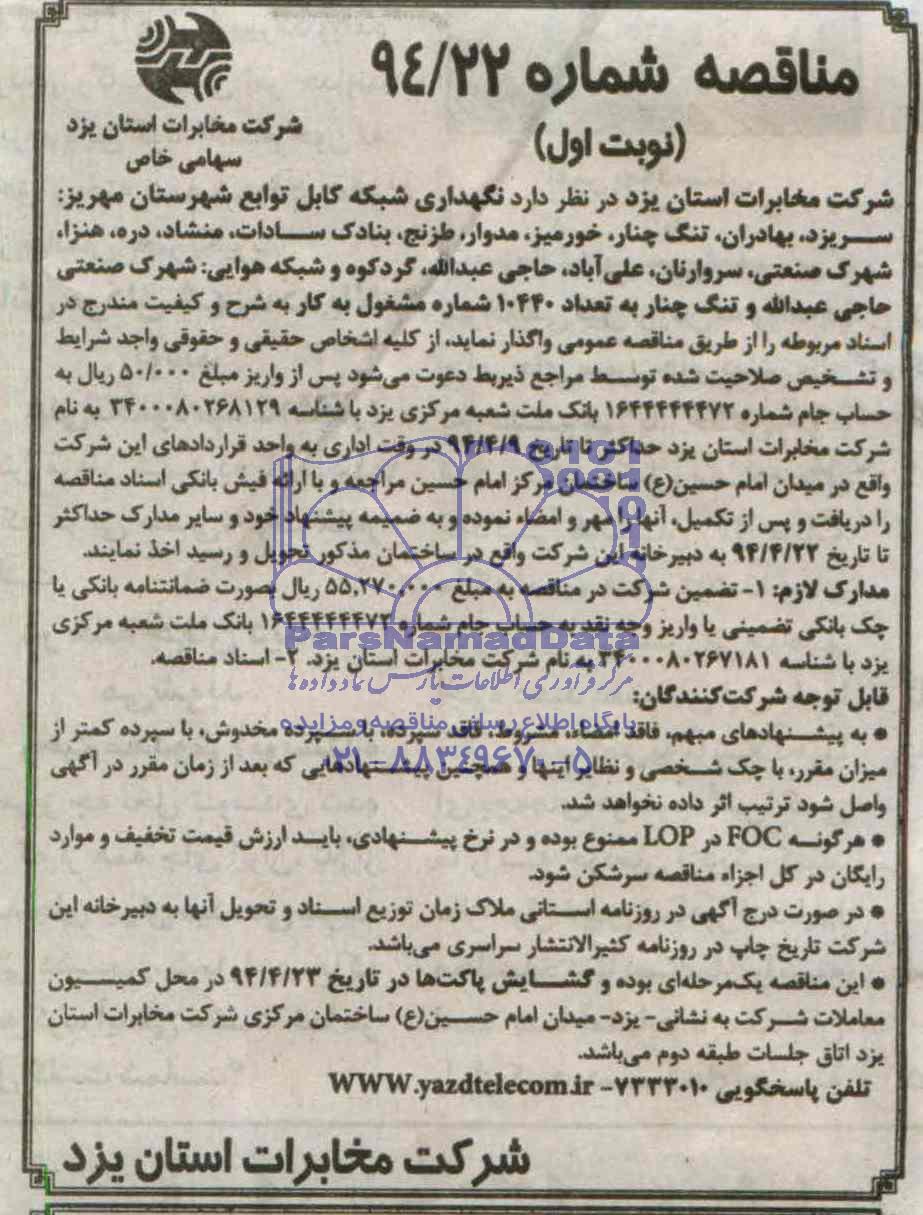 مناقصه شماره ۹۴/۲۲
(نوبت اول)
شرکت مخابرات استان یزد
سهامی خاص
شرکت مخابرات استان یزد در نظر دارد نگهداری شبکه کابل توابع شهرستان مهریز:
سریزد، بهادران، تنگ چنار، خورمیز، مدوار، طزنج، بنادک سادات، منشاد، دره، هنزا،
شهرک صنعتی، سروارنان، علی‌آباد، حاجی عبدالله، گردکوه و شبکه هوایی: شهرک صنعتی
حاجی عبدالله و تنگ چنار به تعداد ۱۰۴۴۰ شماره مشغول به کار به شرح و کیفیت مندرج در
اسناد مربوطه را از طریق مناقصه عمومی واگذار نماید، از کلیه اشخاص حقیقی و حقوقی واجد شرایط
و تشخیص صلاحیت شده توسط مراجع ذیربط دعوت می‌شود پس از واریز مبلغ ۵۰/۰۰۰ ریال به
حساب جام شماره ۱۶۴۴۴۴۴۴۷۲ بانک ملت شعبه مرکزی یزد با شناسه ۳۴۰۰۰۸۰۲۶۸۱۲۹ به نام
شرکت مخابرات استان یزد حداکثر تا تاریخ ۹۴/۴/۹ در وقت اداری به واحد قراردادهای این شرکت
واقع در میدان امام حسین(ع) ساختمان مرکز امام حسین مراجعه و با ارائه فیش بانکی اسناد مناقصه
را دریافت و پس از تکمیل، آنها را مهر و امضاء نموده و به ضمیمه پیشنهاد خود و سایر مدارک حداکثر
تا تاریخ ۹۴/۴/۲۲ به دبیرخانه این شرکت واقع در ساختمان مذکور تحویل و رسید اخذ نمایند.
مدارک لازم: ۱- تضمین شرکت در مناقصه به مبلغ ۵۵,۲۷۰,۰۰۰ ریال بصورت ضمانتنامه بانکی یا
چک بانکی تضمینی یا واریز وجه نقد به حساب جام شماره ۱۶۴۴۴۴۴۴۷۲ بانک ملت شعبه مرکزی
یزد با شناسه ۳۴۰۰۰۸۰۲۶۷۱۸۱ به نام شرکت مخابرات استان یزد. ۲- اسناد مناقصه.
قابل توجه شرکت‌کنندگان:
● به پیشنهادهای مبهم، فاقد امضاء، مشروط، فاقد سپرده، با سپرده مخدوش، با سپرده کمتر از
میزان مقرر، با چک شخصی و نظایر اینها و همچنین پیشنهادهایی که بعد از زمان مقرر در آگهی
واصل شود ترتیب اثر داده نخواهد شد.
● هرگونه FOC در LOP ممنوع بوده و در نرخ پیشنهادی، باید ارزش قیمت تخفیف و موارد
رایگان در کل اجزاء مناقصه سرشکن شود.
● در صورت درج آگهی در روزنامه استانی ملاک زمان توزیع اسناد و تحویل آنها به دبیرخانه این
شرکت تاریخ چاپ در روزنامه کثیرالانتشار سراسری می‌باشد.
● این مناقصه یک‌مرحله‌ای بوده و گشایش پاکت‌ها در تاریخ ۹۴/۴/۲۳ در محل کمیسیون
معاملات شرکت به نشانی- یزد- میدان امام حسین(ع) ساختمان مرکزی شرکت مخابرات استان
یزد اتاق جلسات طبقه دوم می‌باشد.
تلفن پاسخگویی ۷۳۳۳۰۱۰- WWW.yazdtelecom.ir
شرکت مخابرات استان یزد
ParsNamadData
مرکز فرآوری اطلاعات پارس نماد داده ها
پایگاه اطلاع رسانی مناقصه و مزایده
۰۲۱-۸۸۳۴۹۶۷۰-۵